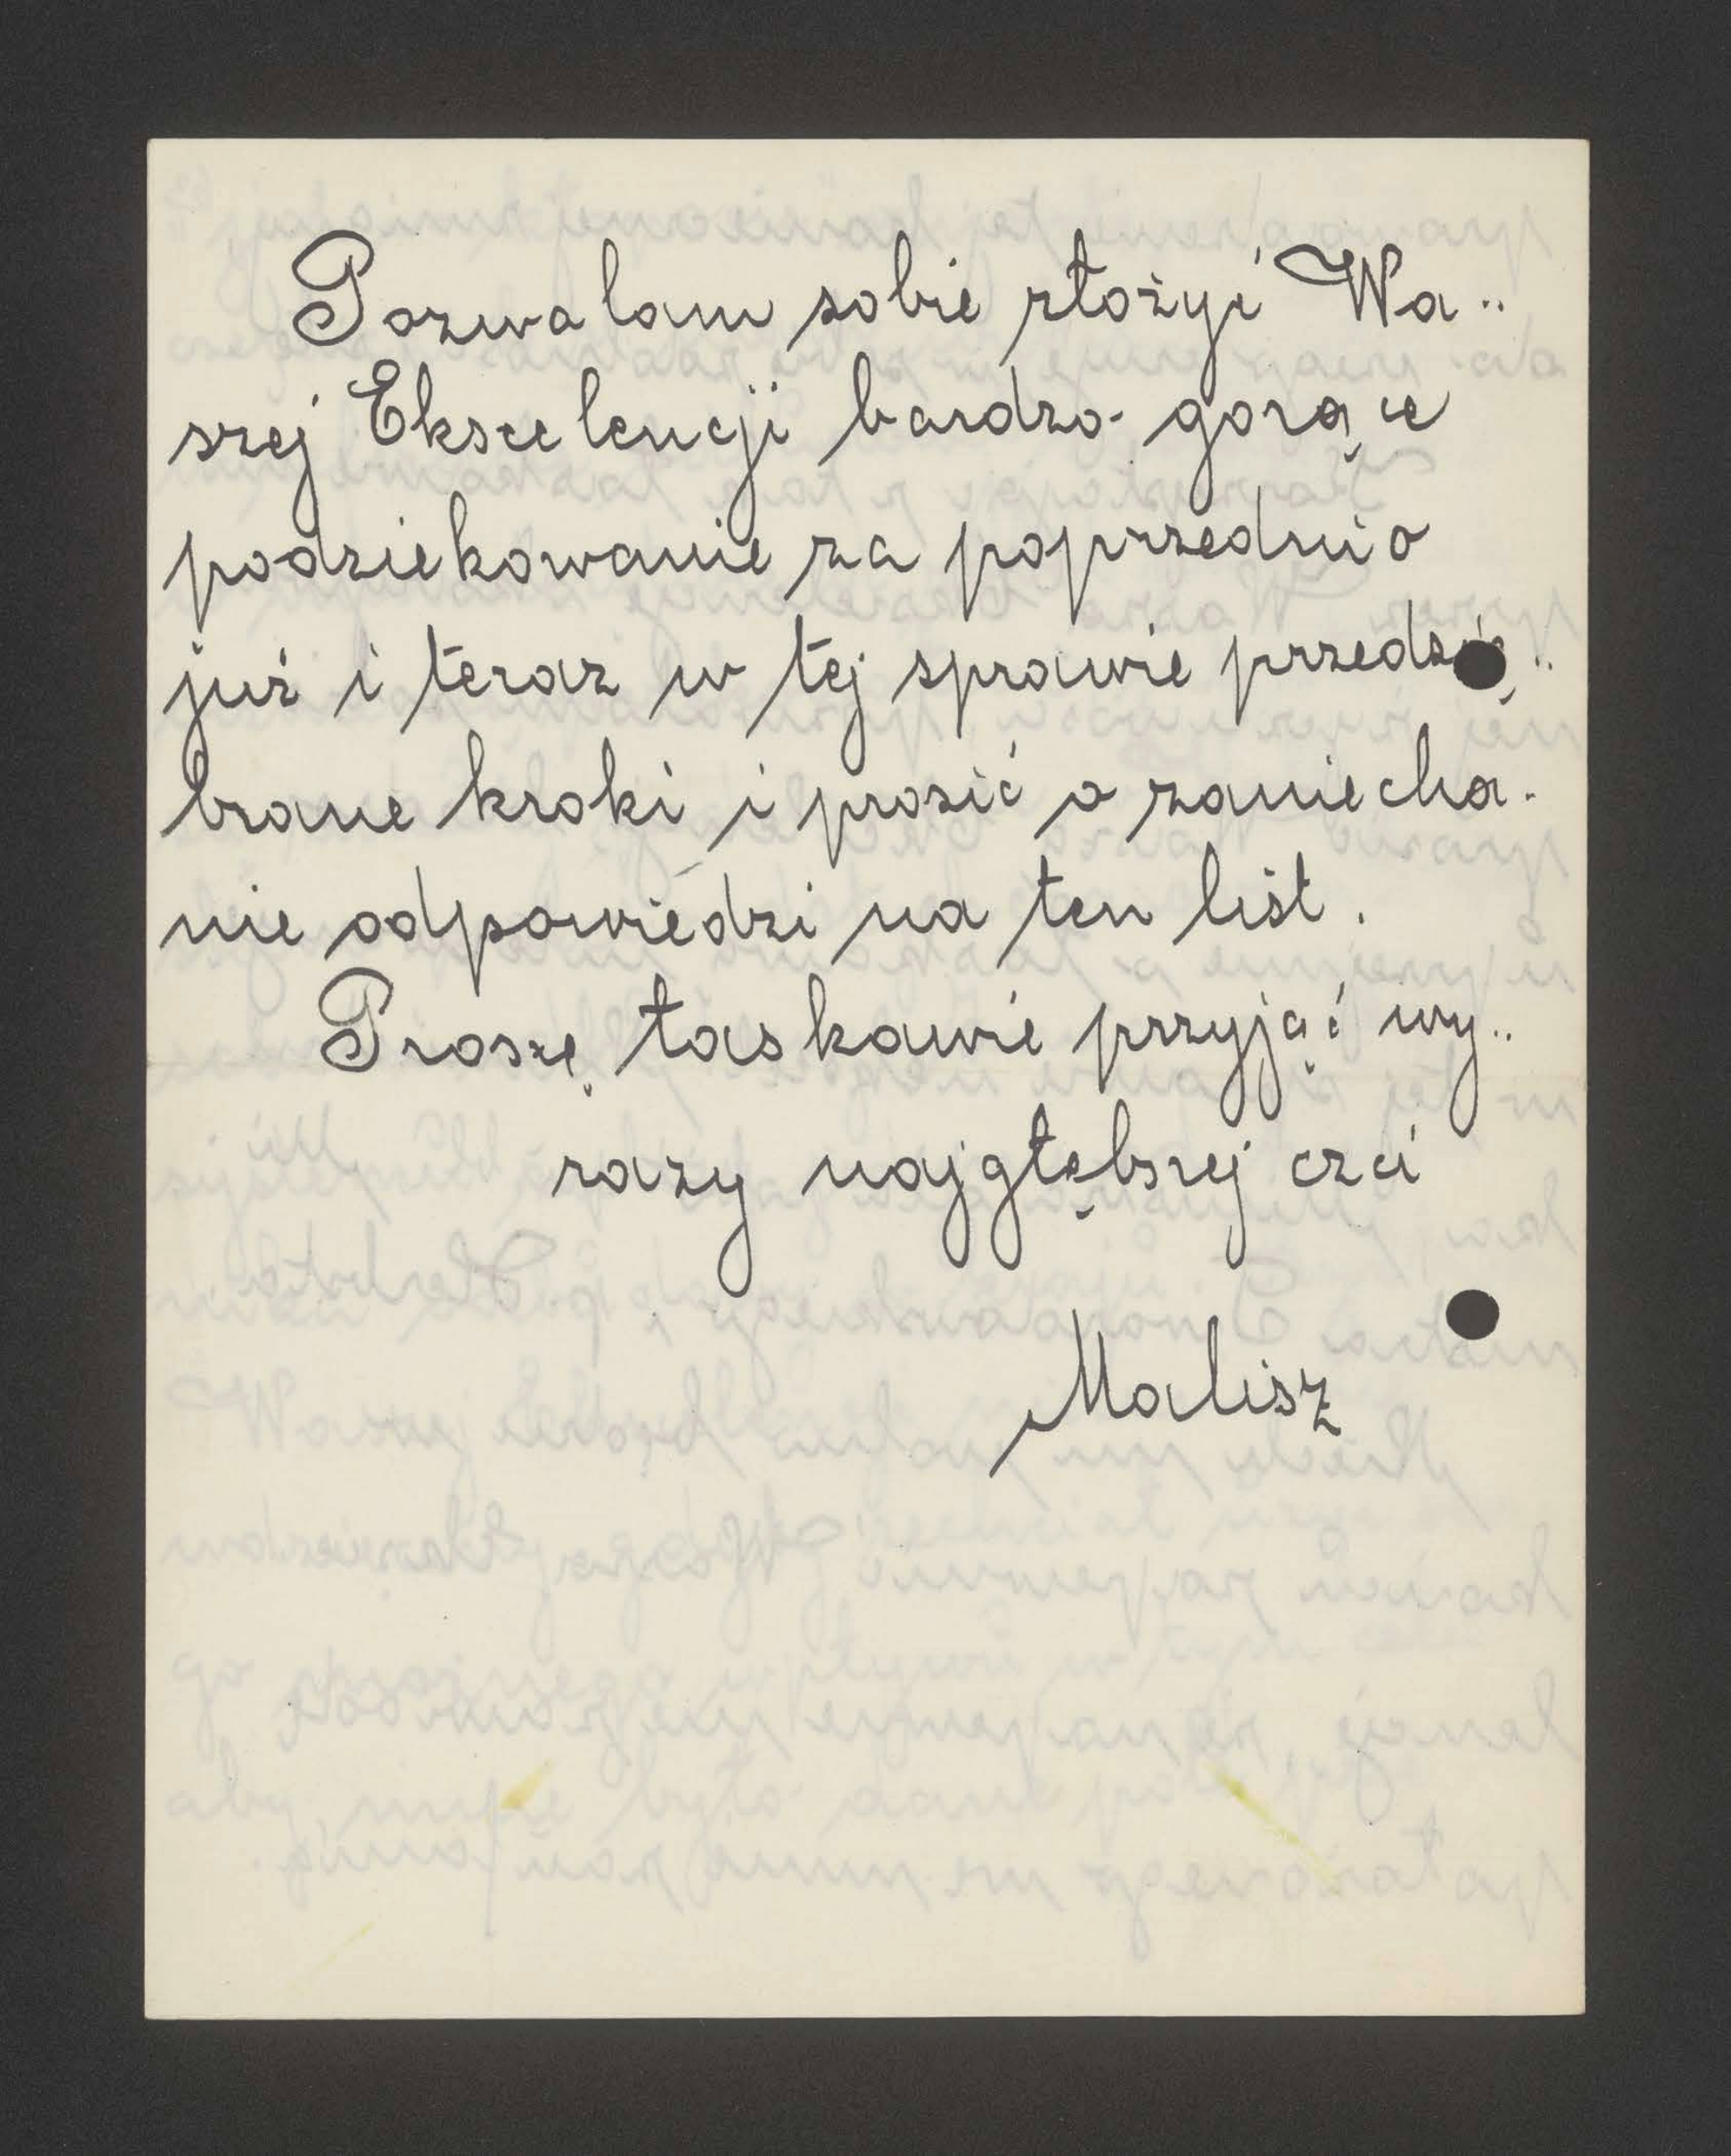 Pozwalam sobie złożyć Wa-
szej Ekscelencji bardzo gorące
podziekowanie za poprzednio
już i teraz w tej sprawie
brane kroki i prosić o zaniecha-
nie odpowiedzi na ten list.
Proszę łaskawie przyjąć wy-
razy najgłębszej czci
Malisz